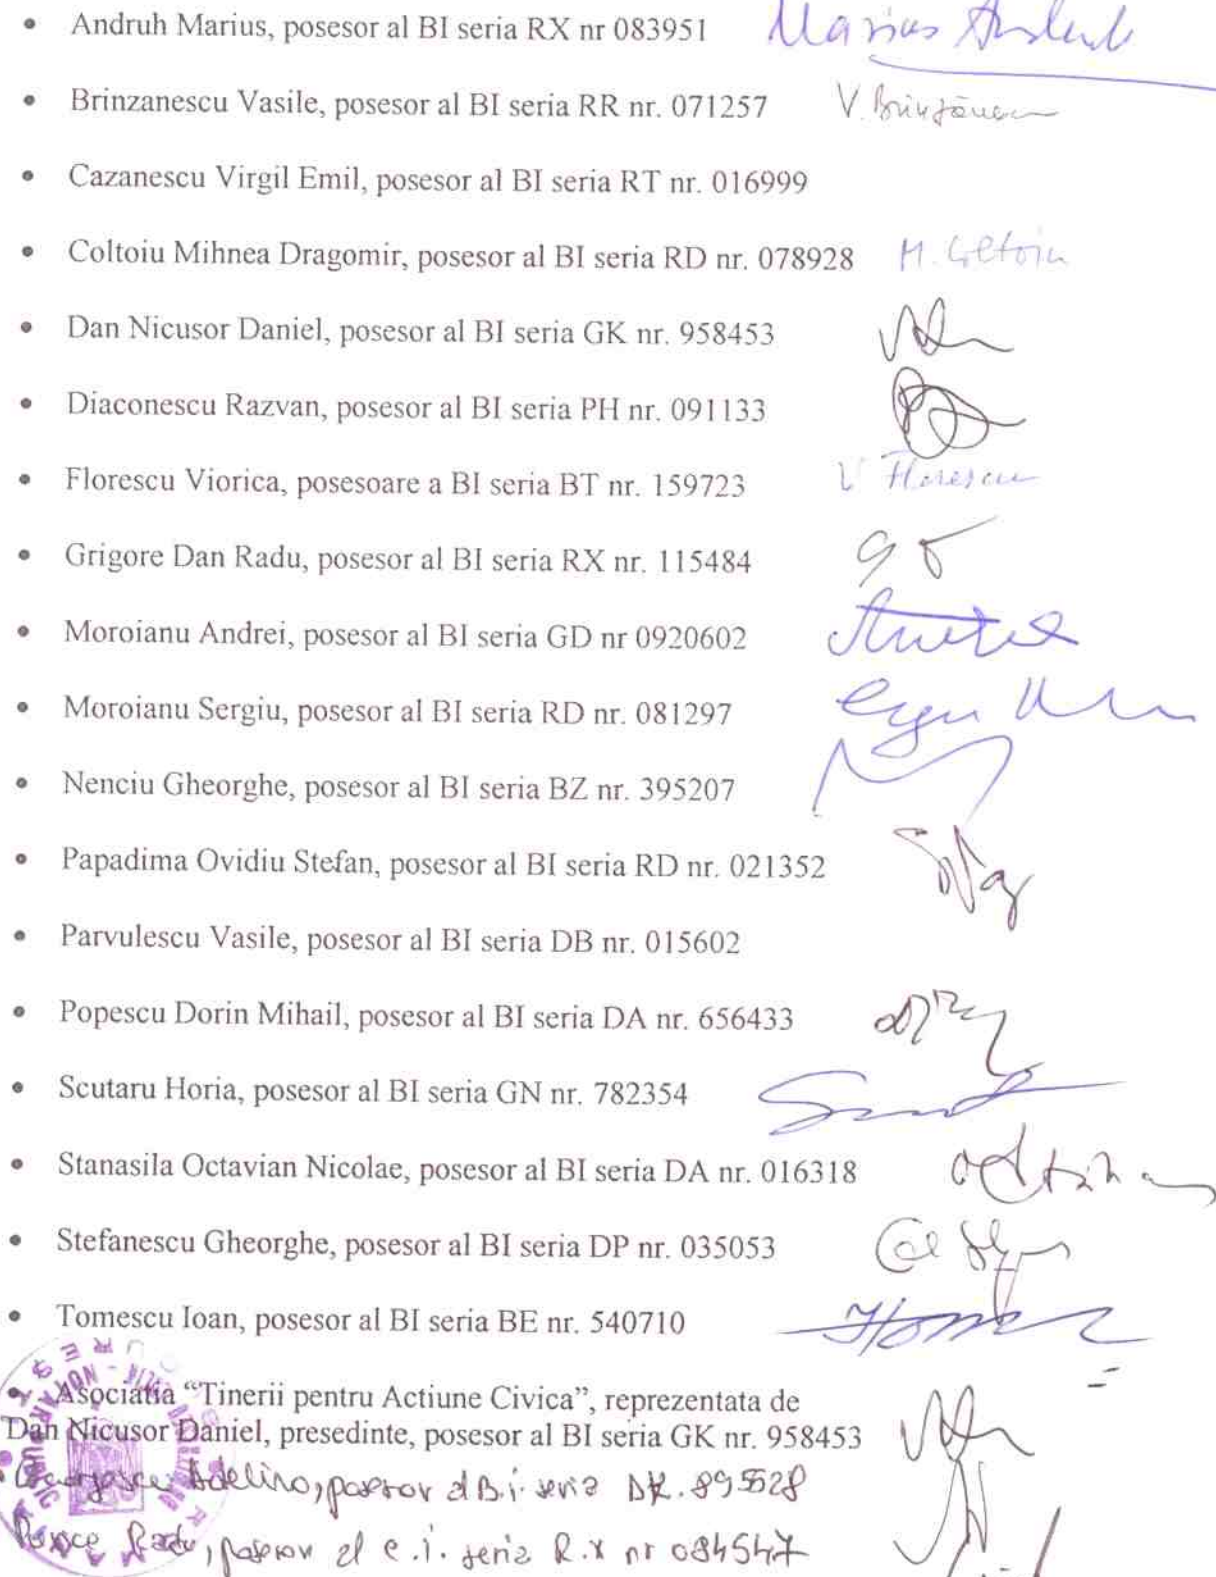 • Andruh Marius, posesor al BI seria RX nr 083951 Marius Andruh
• Brinzanescu Vasile, posesor al BI seria RR nr. 071257 V. Brinzănescu
• Cazanescu Virgil Emil, posesor al BI seria RT nr. 016999
• Coltoiu Mihnea Dragomir, posesor al BI seria RD nr. 078928 M. Coltoiu
• Dan Nicusor Daniel, posesor al BI seria GK nr. 958453
• Diaconescu Razvan, posesor al BI seria PH nr. 091133
• Florescu Viorica, posesoare a BI seria BT nr. 159723 V Florescu
• Grigore Dan Radu, posesor al BI seria RX nr. 115484
• Moroianu Andrei, posesor al BI seria GD nr 0920602
• Moroianu Sergiu, posesor al BI seria RD nr. 081297
• Nenciu Gheorghe, posesor al BI seria BZ nr. 395207
• Papadima Ovidiu Stefan, posesor al BI seria RD nr. 021352
• Parvulescu Vasile, posesor al BI seria DB nr. 015602
• Popescu Dorin Mihail, posesor al BI seria DA nr. 656433
• Scutaru Horia, posesor al BI seria GN nr. 782354
• Stanasila Octavian Nicolae, posesor al BI seria DA nr. 016318
• Stefanescu Gheorghe, posesor al BI seria DP nr. 035053
• Tomescu Ioan, posesor al BI seria BE nr. 540710
• Asociatia “Tinerii pentru Actiune Civica”, reprezentata de
Dan Nicusor Daniel, presedinte, posesor al BI seria GK nr. 958453
posesor al B.i. seria DK. 895528
Radu, posesor al c.i. seria R.X nr 084547